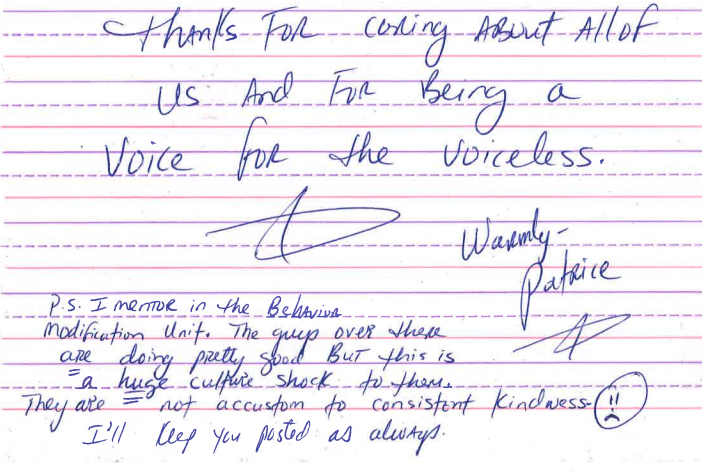 Thanks For caring About All of
us And For Being a
Voice for the voiceless.
Warmly-
Patrice
P.S. I mentor in the Behavior
Modification Unit. The guys over there
are doing pretty good But this is
a huge culture shock to them.
They are not accustom to consistent kindness
I'll keep you posted as always.